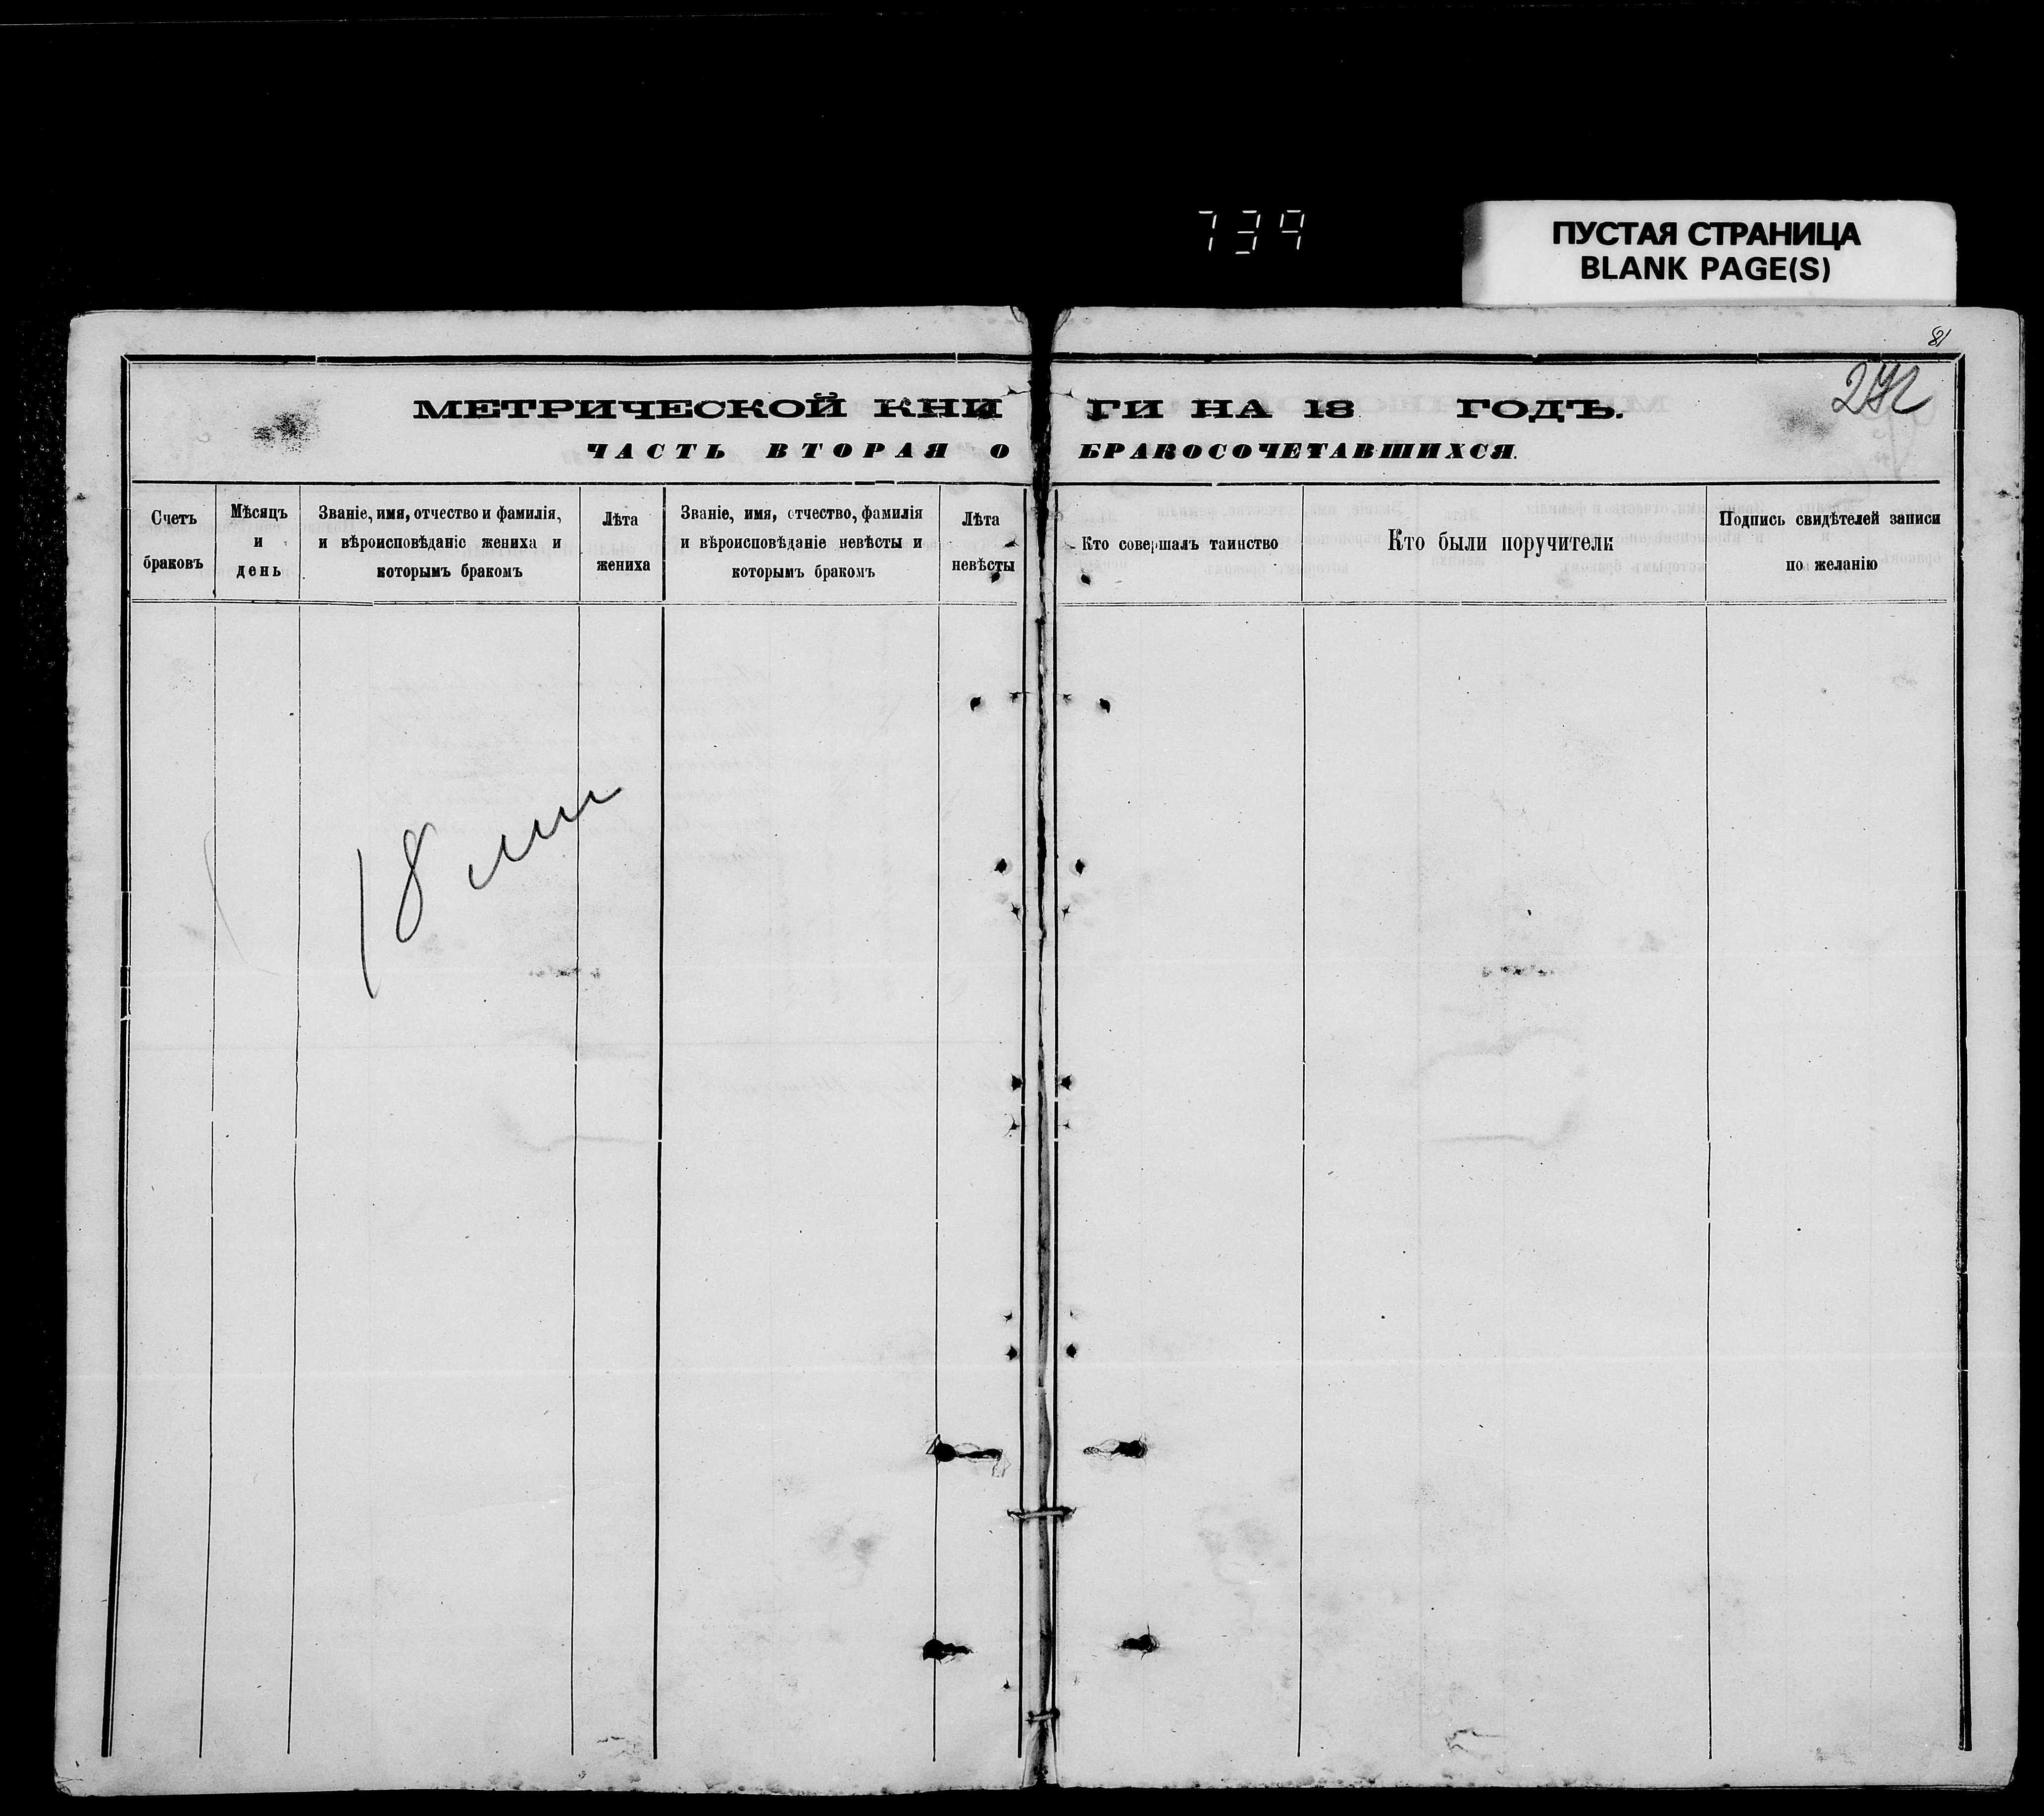 739
ПУСТАЯ СТРАНИЦА
BLANK PAGE(S)
81
МЕТРИЧЕСКОЙ КНИГИ НА 18 ГОДЪ.
ЧАСТЬ ВТОРАЯ О БРАКОСОЧЕТАВШИХСЯ.
Счетъ
браковъ
Мѣсяцъ
и
день
Званіе, имя, отчество и фамилія,
и вѣроисповѣданіе жениха и
которымъ бракомъ
Лѣта
жениха
Званіе, имя, отчество, фамилія
и вѣроисповѣданіе невѣсты и
которымъ бракомъ
Лѣта
невѣсты
Кто совершалъ таинство
Кто были поручители
Подпись свидѣтелей записи
по желанію
18